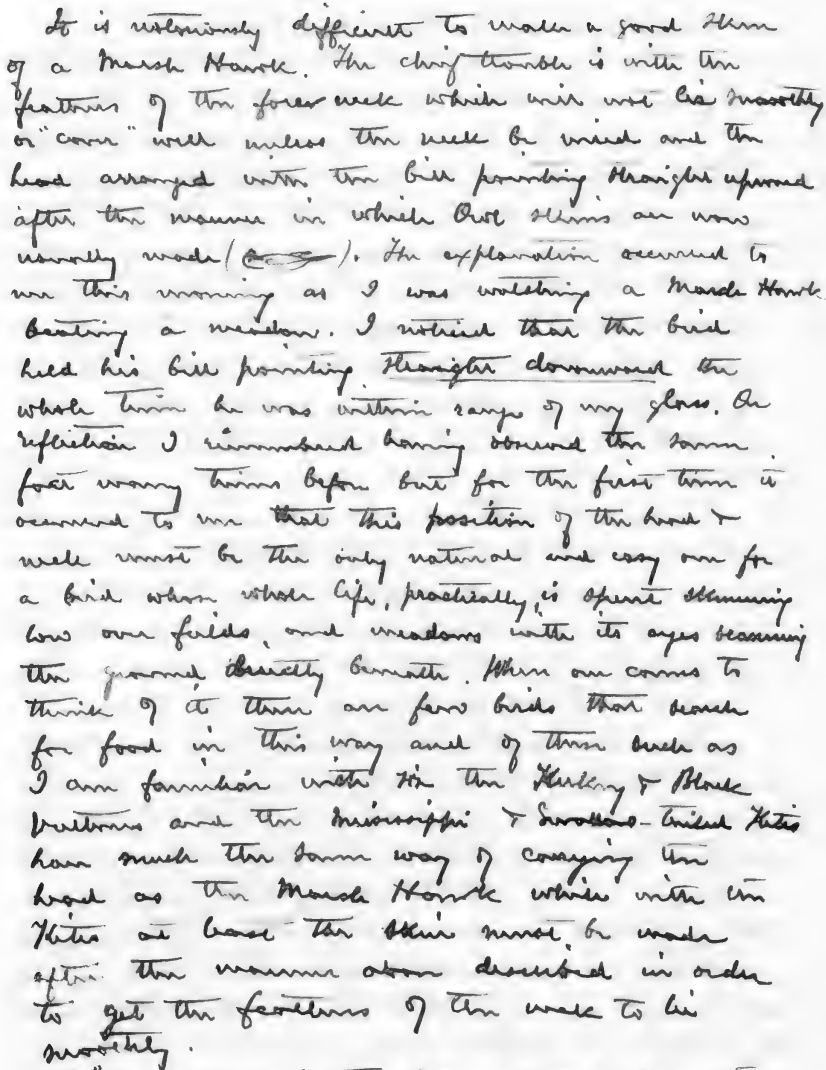 It is notoriously difficult to make a good skin
of a Marsh Hawk. The chief trouble is with the
feathers of the fore neck which will not lie smoothly
or "cover" well unless the neck be wired and the
head arranged with the bill pointing straight upward
after the manner in which Owl skins are now
usually made ( ). The explanation occurred to
me this morning as I was watching a Marsh Hawk
beating a meadow. I noticed that the bird
held his bill pointing straight downward the
whole time he was within range of my glass. On
reflection I remembered having observed the same
fact many times before but for the first time it
occurred to me that this position of the head &
neck must be the only natural and easy one for
a bird whose whole life, practically, is spent skimming
low over fields and meadows with its eyes scanning
the ground directly beneath. When one comes to
think of it there are few birds that search
for food in this way and of these such as
I am familiar with viz the Turkey & Black
Vultures and the Mississippi & Swallow-tailed Kites
have much the same way of carrying the
head as the Marsh Hawk while with the
Kites at least the skin must be made
after the manner above described in order
to get the feathers of the neck to lie
smoothly.